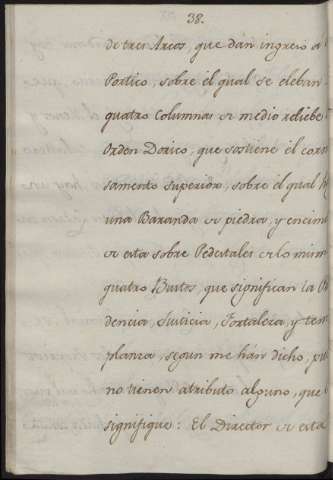 38.
de tres Arcos, que dán ingreso à
Portico, sobre el qual se eleban
quatro Columnas de medio reliebe
orden Dorico, que sostiene el corni
samento superior, sobre el qual
una Baranda de piedra, y encima
de esta sobre Pedestales de lo mism
quatro Bustos, que significan la
dencia, Justicia, Fortaleza, y tem
planza, segun me hán dicho, pu
no tienen atributo alguno, que
signifique: El Director de esta